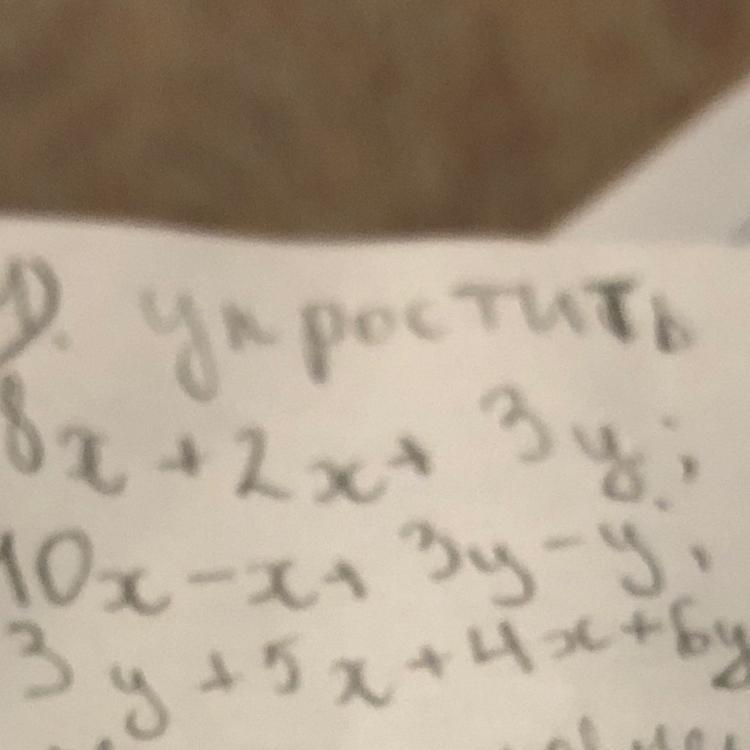 1). упростить
8x + 2x + 3y;
10x - x + 3y - y;
3y + 5x + 4x + 6y